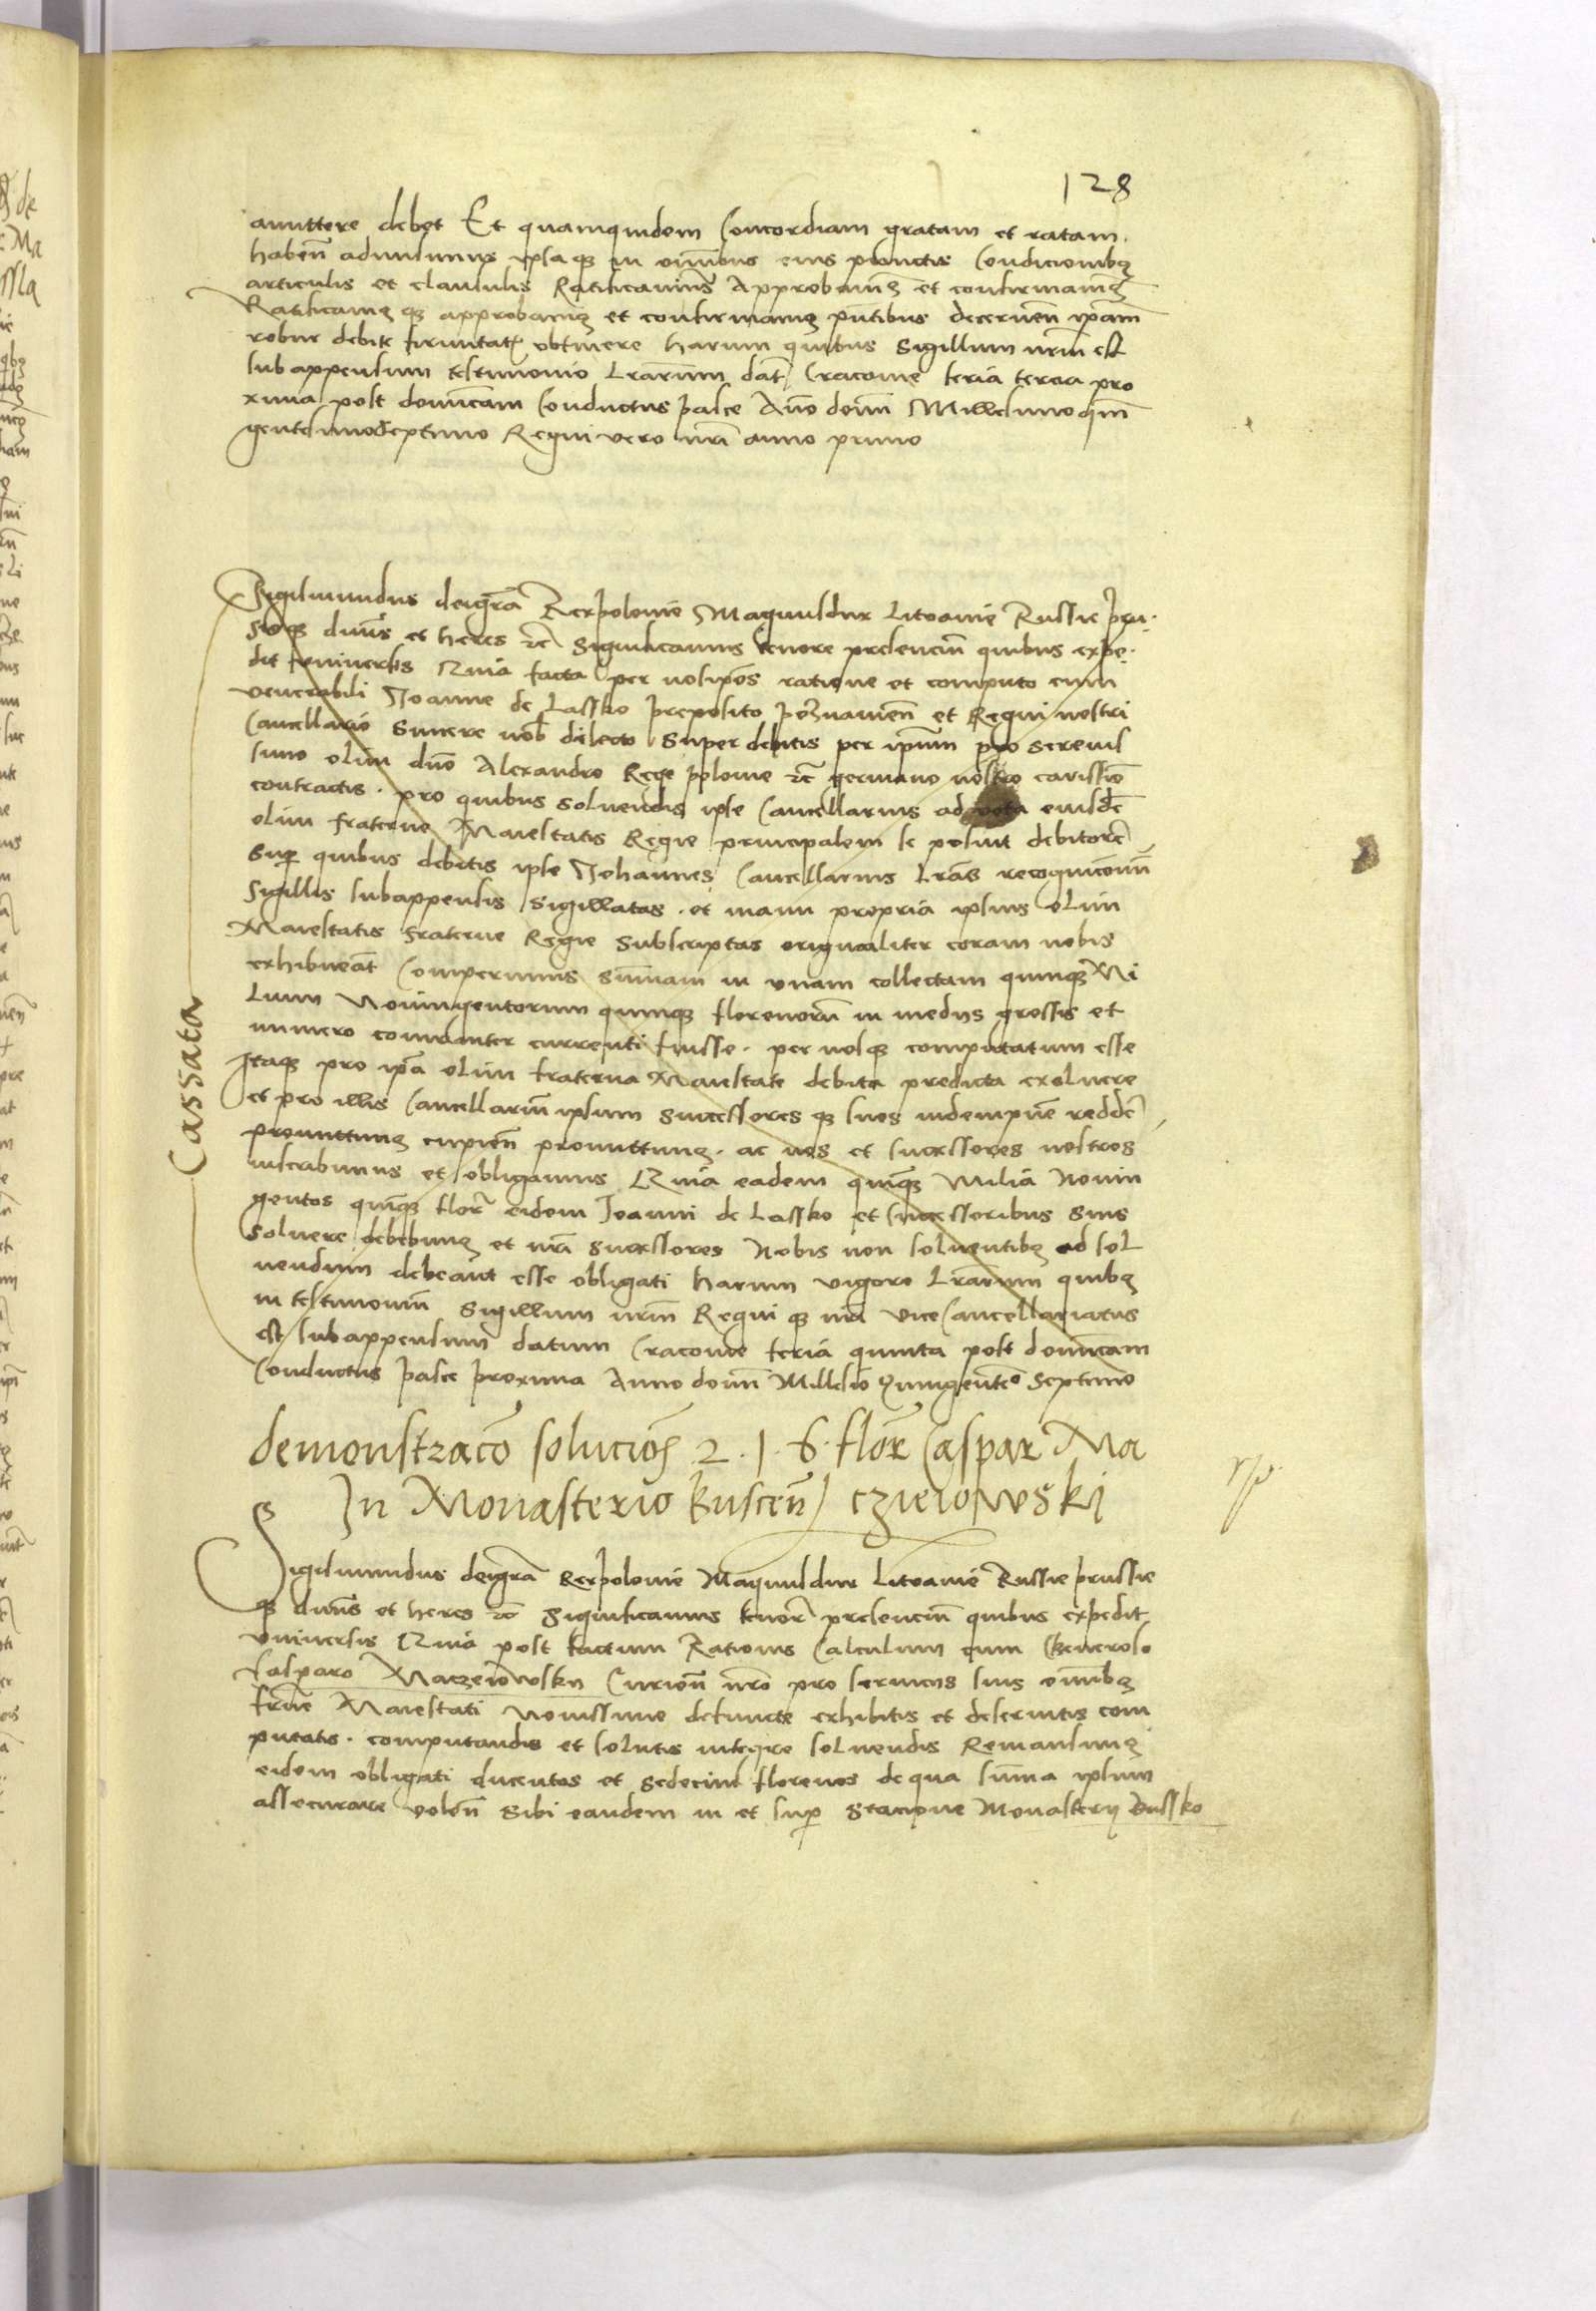 128
amittere debet Et quamquidem Concordiam gratam et ratam
habeñ admisimus ipsaqʒ in omnibus eius punctis Condicionibʒ
articulis et clausulis Ratificavimʒ Approbavimʒ et confirmavimʒ
Ratificamʒ qʒ approbamʒ et confirmamʒ pñtibus decerneñ ipam
robur debite firmitatis obtinere harum quibus Sigillum nrm est
subappensum testimonio Lrarum dat Cracovie feria tercia pro
xima post domicam Conductus pasce Año domi Millesimo qin
gentesimoseptimo Regni vero nri anno primo
Cassata
Sigismundus deigra Rex polonie Magnusdux Litvanie Russie pru
sieqʒ dñus et heres etc̄ Significamus tenore presenciũ quibus expe
dit universis Quia facta per nosipos ratione et computo cum
venerabili Joanne de Lassko preposito posnanieñ et Regni nostri
Cancellario Sincere nob dilecto Super debitis per ipsum pro serenis
simo olim dño Alexandro Rege polonie etc̄ germano nostro carissiō
contractis . pro quibus solvendis ipse Cancellarius ad vota eiusdē
olim fraterne Maiestatis Regie principalem se posuit debitorē
Sup quibus debitis ipse Johannes Cancellarius Lras recognicionũ
Sigillis subappensis Sigillatas . et manu propria ipsius olim
Maiestatis fraterne Regie Subscriptas originaliter coram nobis
exhibueāt Comperimus Sum̃am in unam collectam quinqʒ Mi
lium Noningentorum quinqʒ florenorũ in medys grossis et
numero comuniter currenti fuisse . per nosqʒ computatum esse
Itaqʒ pro ipa olim fraterna Maiestate debita predicta exolvere
et pro illis Cancellariũ ipsum Successores qʒ suos indempnē redderē
promittimʒ cupieñ promittimʒ . ac nos et successores nostros
inscribimus et obligamus Quia eadem quinqʒ Milia Nonin
gentos quinqʒ flor eidem Joanni de Lassko et Successoribus Suis
Solvere debebimʒ et nri Successores Nobis non solventibʒ ad sol
vendum debeant esse obligati harum vigore Lrarum quibʒ
in testimoniũ Sigillum nrm Regni qʒ nri vice Cancellariatus
est subappensum datum Cracovie feria quinta post domicam
Conductus pasce proxima Anno domi Millesiō Quingenteō Septimo
demonstracō solucioñ 2 . 1 . 6 . flor Caspar Ma
In Monasterio busceñ czieiowski
Sigismundus deigra Rex polonie Magnusdux Litvanie Russie prussie
qʒ dñus et heres etc̄ Significamus tenorē presenciũ quibus expedit
universis Quia post factum Rationis Calculum cum Generoso
Casparo Maczeiowsky Curieñ nro pro serviciis suis om̃ibʒ
frne Maiestati novissime defuncte exhibitis et deservitis com
putatis . computandis et solutis integre solvendis Remansimʒ
eidem obligati ducentos et sedecim florenos de qua sum̃a ipsum
assecurare voleñ Sibi eandem in et sup Stacione Monastery Bussko